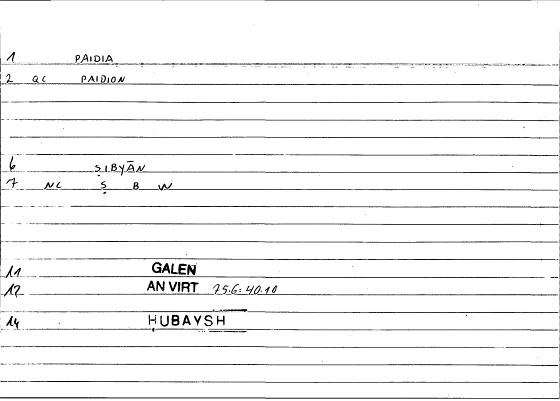 1 PAIDIA
2 QC PAIDION
6 ṢIBYĀN
7 NC Ṣ B W
11 GALEN
12 AN VIRT 75.6: 40.10
14 ḤUBAYSH